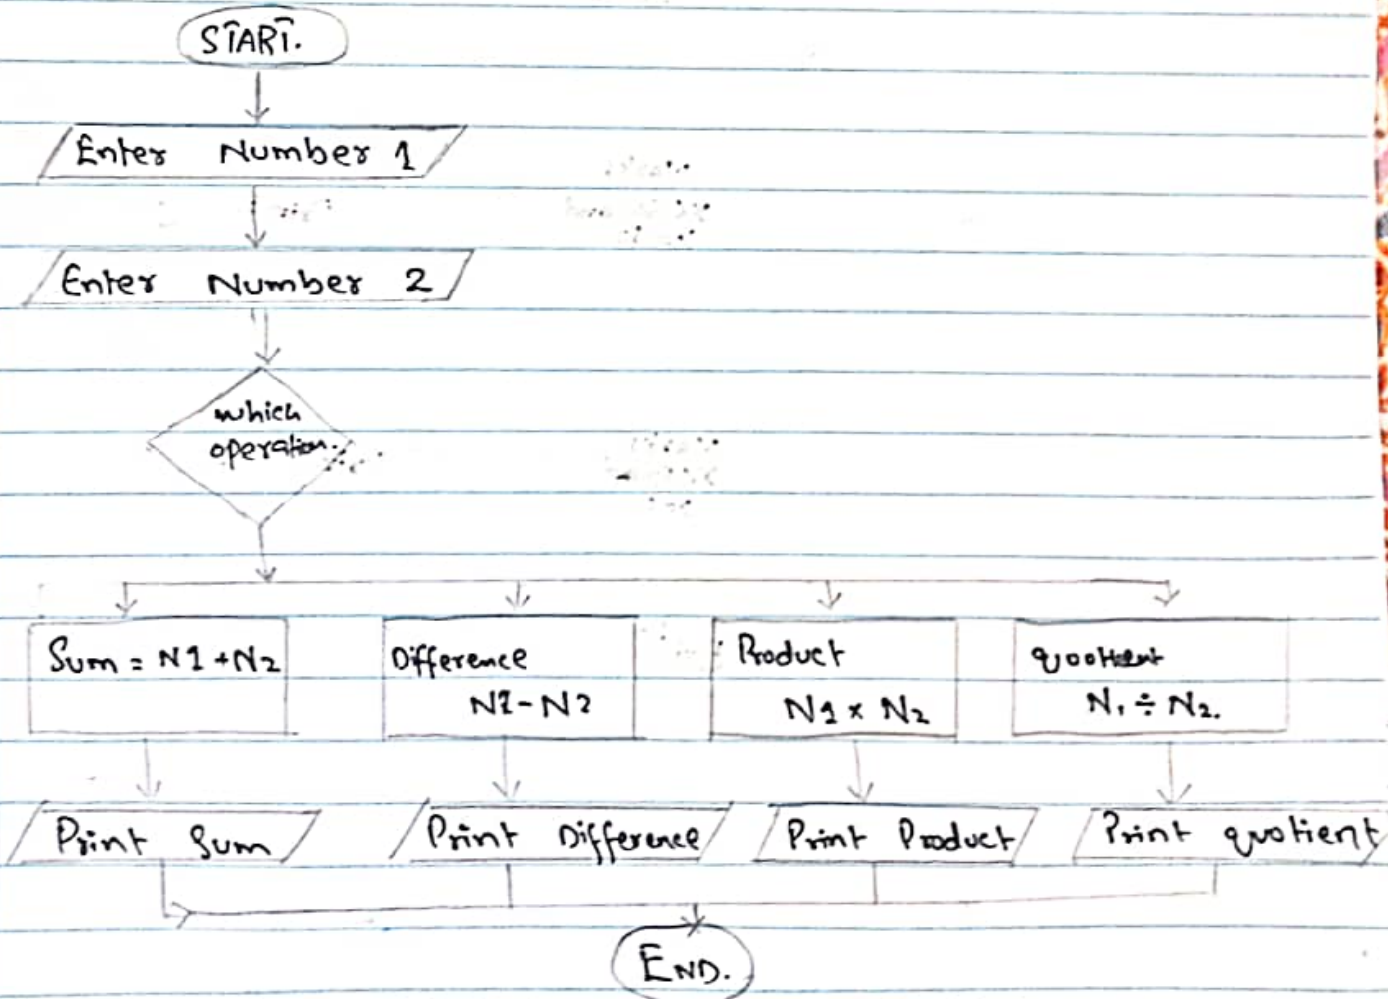 START.
Enter Number 1
Enter Number 2
which
operation.
Sum = N1 + N2
Difference
N1 - N2
Product
N1 × N2
quotient
N1 ÷ N2.
Print Sum
Print Difference
Print Product
Print quotient
END.